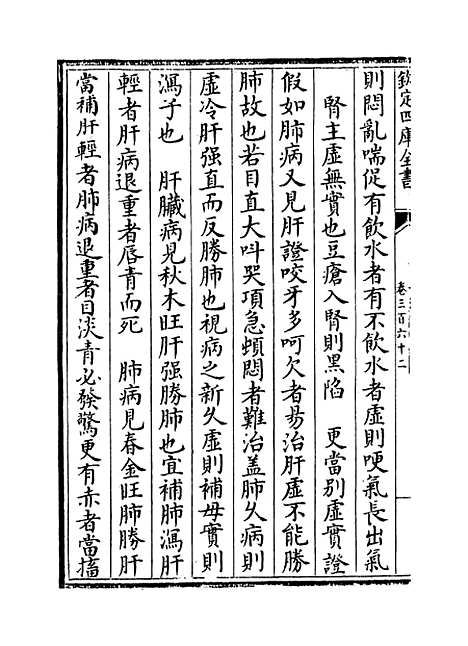 欽定四庫全書
卷三百六十二
則悶亂喘促有飲水者有不飲水者虛則哽氣長出氣
腎主虛無實也豆瘡入腎則黑陷　更當別虛實證
假如肺病又見肝證咬牙多呵欠者易治肝虛不能勝
肺故也若目直大呌哭項急頓悶者難治盖肺乆病則
虛冷肝强直而反勝肺也視病之新乆虛則補母實則
瀉子也　肝臟病見秋木旺肝强勝肺也宜補肺瀉肝
輕者肝病退重者唇青而死　肺病見春金旺肺勝肝
當補肝輕者肺病退重者目淡青必發驚更有赤者當搐